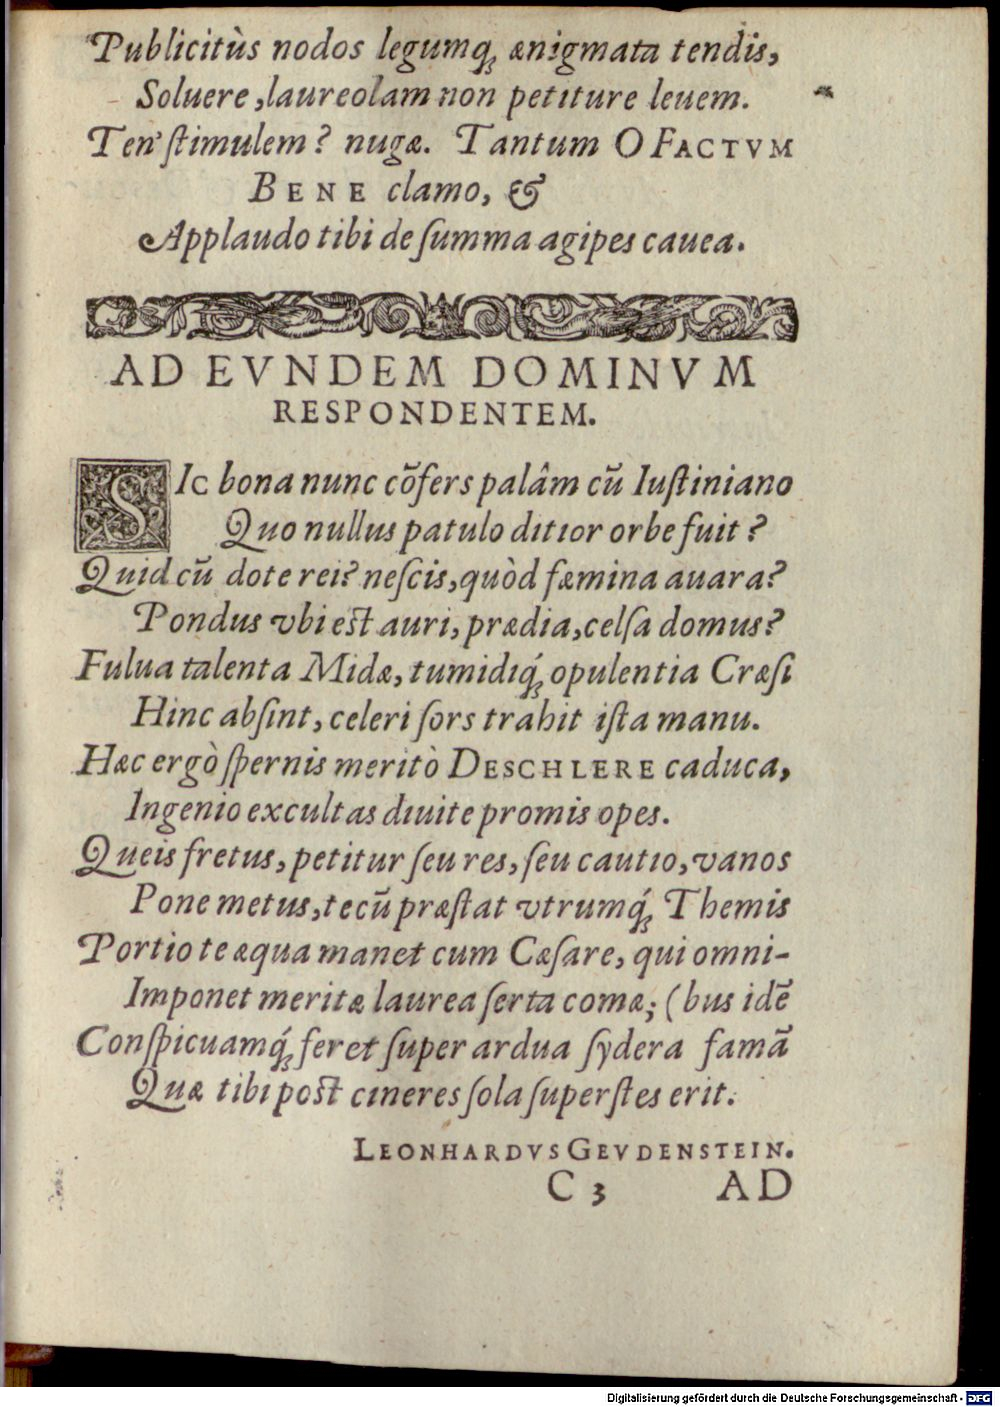 Publicitùs nodos legumq́ꝫ ænigmata tendis,
Soluere, laureolam non petiture leuem.
Ten' ſtimulem? nugæ. Tantum O FACTVM
BENE clamo, &
Applaudo tibi de ſumma agipes cauea.
AD EVNDEM DOMINVM
RESPONDENTEM.
SIc bona nunc cōfers palâm cū Iuſtiniano
Quo nullus patulo ditior orbe fuit?
Quid cū dote rei? neſcis, quòd fæmina auara?
Pondus vbi eſt auri, prædia, celſa domus?
Fulua talenta Midæ, tumidiq́ꝫ opulentia Cræſi
Hinc abſint, celeri ſors trahit iſta manu.
Hæc ergò ſpernis meritò DESCHLERE caduca,
Ingenio excultas diuite promis opes.
Queis fretus, petitur ſeu res, ſeu cautio, vanos
Pone metus, tecū præſtat vtrumq́ꝫ Themis
Portio te æqua manet cum Cæſare, qui omni-
Imponet meritæ laurea ſerta comæ; (bus idē
Conſpicuamq́ꝫ feret ſuper ardua ſydera famā
Quæ tibi poſt cineres ſola ſuperſtes erit.
LEONHARDVS GEVDENSTEIN.
C 3 AD
Digitalisierung gefördert durch die Deutsche Forschungsgemeinschaft - DFG